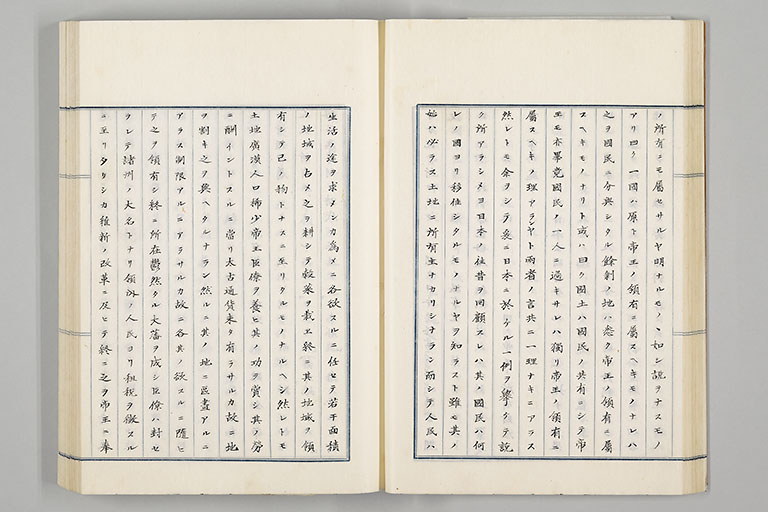 ノ所有ニモ屬セサルヤ明ナルモノヽ如シ説ヲナスモノ
アリ曰ク一國ハ原ト帝王ノ領有ニ屬スヘキモノナレハ
之ヲ國民ニ分與シタル餘剰ノ地ハ悉ク帝王ノ領有ニ屬
スヘキモノナリト或ハ曰ク國土ハ國民ノ共有ニシテ帝
王モ亦畢竟國民ノ一人ニ過キサレハ獨リ帝王ノ領有ニ
屬スヘキノ理アランヤト兩者ノ言共ニ一理ナキニアラス
然レトモ余ヲシテ爰ニ日本ニ於ケル一例ヲ擧ケテ説
ク所アラシメヨ日本ノ往昔ヲ回顧スレハ其ノ國民ハ何
レノ國ヨリ移住シタルモノナルヤヲ知ラスト雖モ其ノ
始ハ必ラス土地ニ所有主ナカリシナラン而シテ人民ハ
生活ノ途ヲ求メンカ為メニ各欲スルニ任セテ若干面積
ノ地域ヲ占メ之ヲ耕シテ穀菜ヲ栽エ終ニ其ノ地域ヲ領
有シテ己ノ物トナスニ至リタルモノナルヘシ然レトモ
土地廣漠人口稀少帝王臣僚ヲ養ヒ其ノ功ヲ賞シ其ノ勞
ニ酬イントスルニ當リ太古通貨未タ有ラサルカ故ニ地
ヲ割キ之ヲ與ヘタルナラン然ルニ其ノ地ニ區畫アルニ
アラス制限アルニアラサルカ故ニ各其ノ欲スルニ随ヒ
テ之ヲ領有シ終ニ所在鬱然タル大藩ヲ成シ臣僚ハ封セ
ラレテ諸州ノ大名トナリ領內ノ人民ヨリ租税ヲ徴スル
ニ至リタリシカ維新ノ改革ニ及ヒテ終ニ之ヲ帝王ニ奉